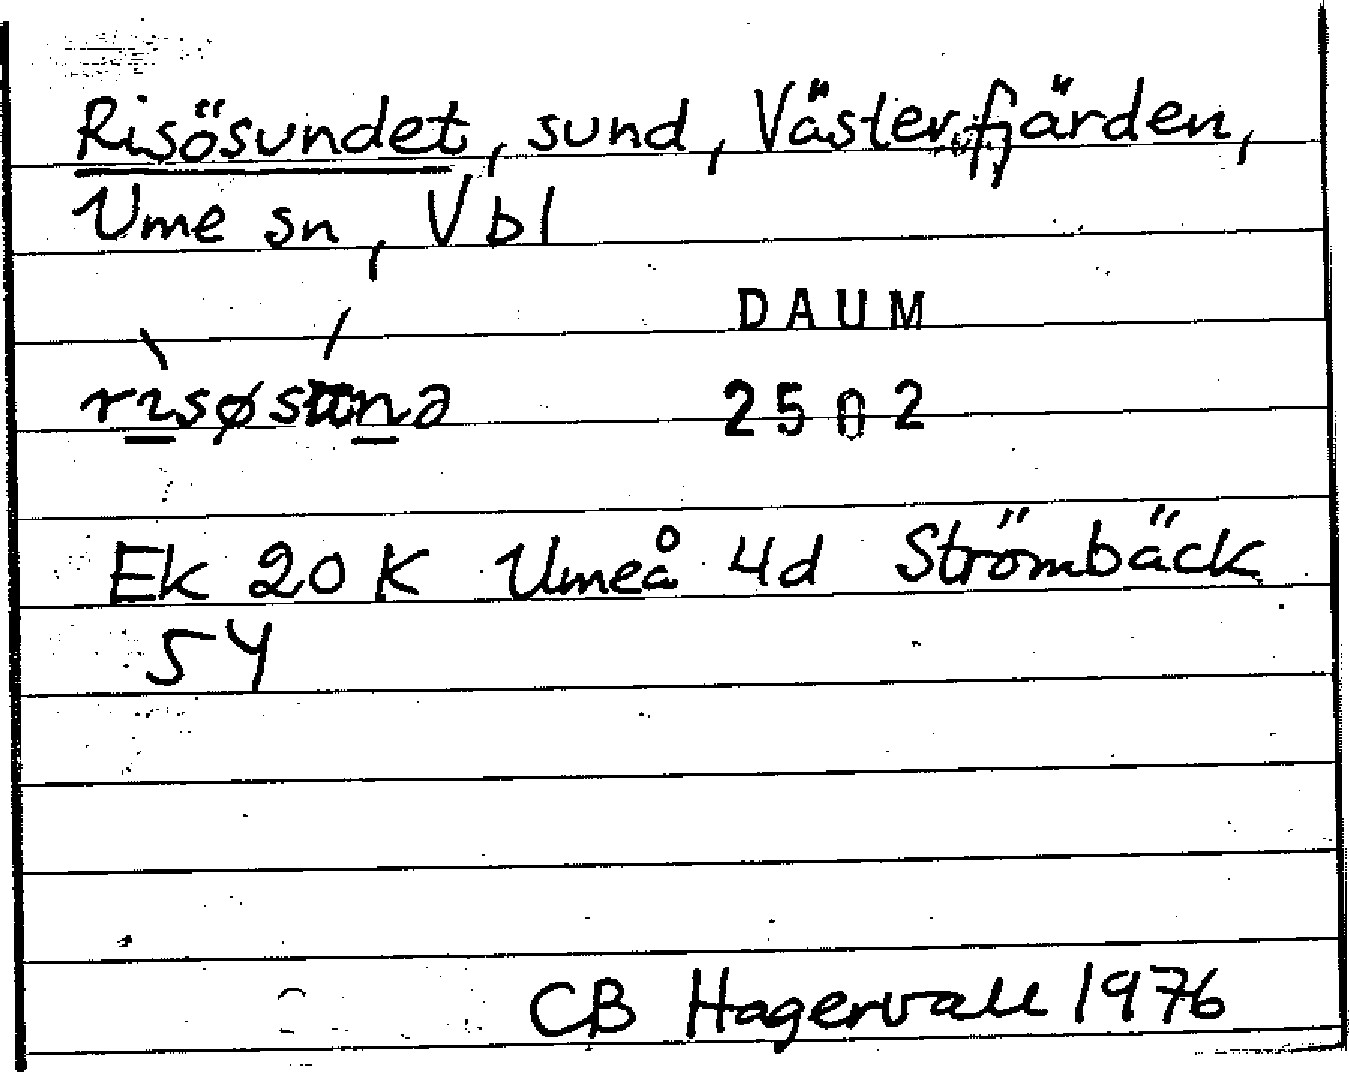 Risösundet, sund, Västerfjärden,
Ume sn, Vbl
DAUM
2502
Ek 20 K Umeå 4d Strömbäck
54
CB Hagervall 1976